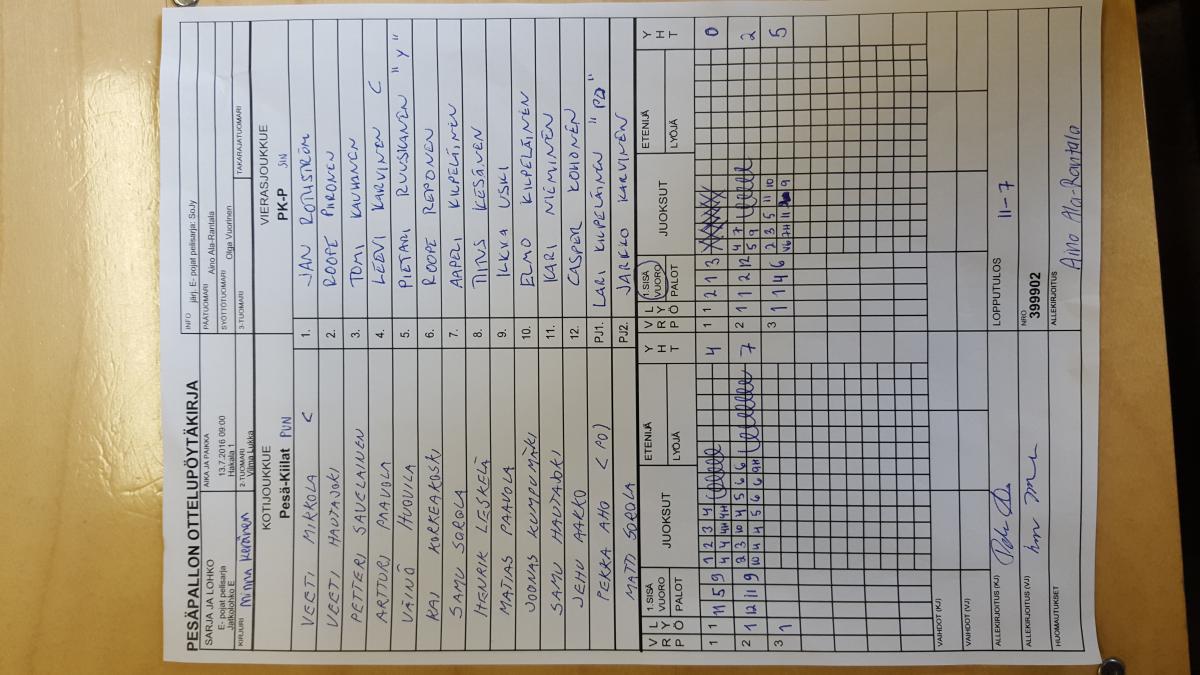 PESÄPALLON OTTELUPÖYTÄKIRJA
SARJA JA LOHKO
E- pojat pelisarja
Jatkolohko E
AIKA JA PAIKKA
13.7.2016 09:00
Hakala 1
INFO järj. E- pojat pelisarja: SoJy
PÄÄTUOMARI Aino Ala-Rantala
SYÖTTÖTUOMARI Olga Vuorinen
KIRJURI Minna Keränen
2-TUOMARI
Vilma Lukka
3-TUOMARI
TAKARAJATUOMARI
KOTIJOUKKUE
Pesä-Kiilat PUN
VIERASJOUKKUE
PK-P SIN
VEETI MIKKOLA C
1. JAN ROTHSTRÖM
VEETI HAUTAJOKI
2. ROOPE PIIRONEN
PETTERI SAVELAINEN
3. TOMI KAUHANEN
ARTTURI PAAVOLA
4. LEEVI KARVINEN C
VÄINÖ HUOVILA
5. PIETARI RUUSKANEN "Y"
KAI KORKEAKOSKI
6. ROOPE REPONEN
SAMU SOROLA
7. AAPELI KILPELÄINEN
HENRIK LESKELÄ
8. TIITUS KESÄNEN
MATIAS PAAVOLA
9. ILKKA USKI
JOONAS KUMPUMÄKI
10. ELMO KILPELÄINEN
SAMU HAUTAJOKI
11. KARI NIEMINEN
JEHU AAKKO
12. CASPER KOHONEN
PEKKA AHO (PJ)
PJ1. LARI KILPELÄINEN "PJ"
MATTI SOROLA
PJ2. JARKKO KARVINEN
V R P
L Y Ö
1.SISÄ
VUORO
PALOT
JUOKSUT
ETENIJÄ
LYÖJÄ
Y H T
V R P
L Y Ö
1.SISÄ
VUORO
PALOT
JUOKSUT
ETENIJÄ
LYÖJÄ
Y H T
1 1 11 5 9
1 2 3 4
4 4 4H 4H
4
1 1 2 1 3
0
2 1 12 11 9
2 3 10 4 5 6 6
10 4 4 5 6 6 9H
7
2 1 1 2 12
4 7
5 9
2
3 1
3 1 1 4 6
2 3 5 11 10
5
VAIHDOT (KJ)
VAIHDOT (VJ)
ALLEKIRJOITUS (KJ)
LOPPUTULOS 11-7
ALLEKIRJOITUS (VJ)
NRO
399902
HUOMAUTUKSET
ALLEKIRJOITUS
Aino Ala-Rantala